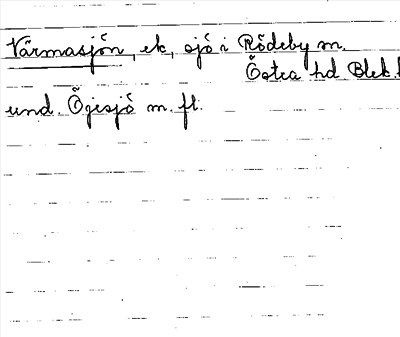 Värmasjön, ek, sjö i Rödeby sn.
Östra hd Blek.
und. Ögesjö m. fl.